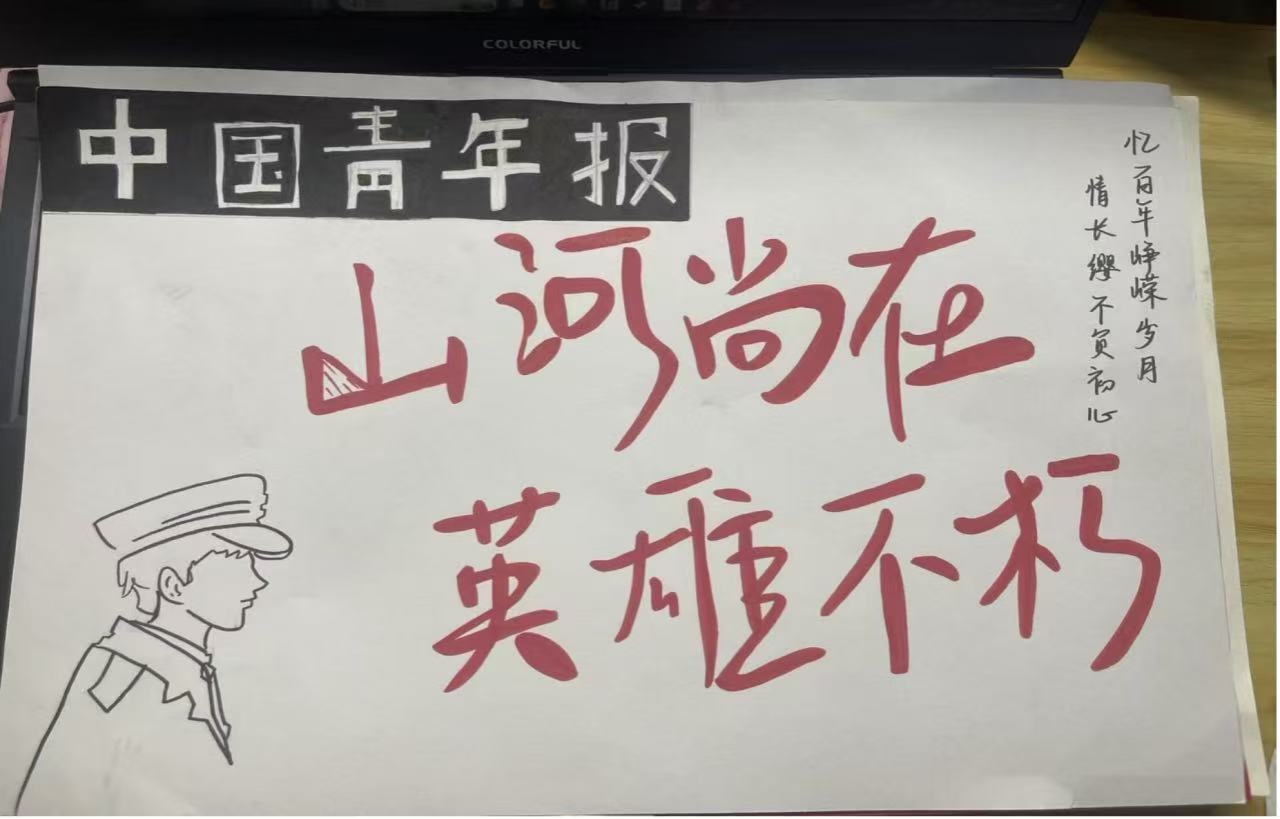 COLORFUL
中国青年报
山河尚在
英雄不朽
忆百年峥嵘岁月
情长缨不负初心